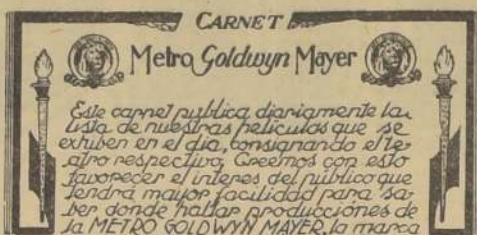 CARNET
Metro Goldwyn Mayer
Este carnet publica diariamente la
lista de nuestras películas que se
exhiben en el día, consignando el te-
atro respectivo. Creemos con esto
favorecer el interes del público que
tendrá mayor facilidad para sa-
ber donde hallar producciones de
la METRO GOLDWYN MAYER, la marca